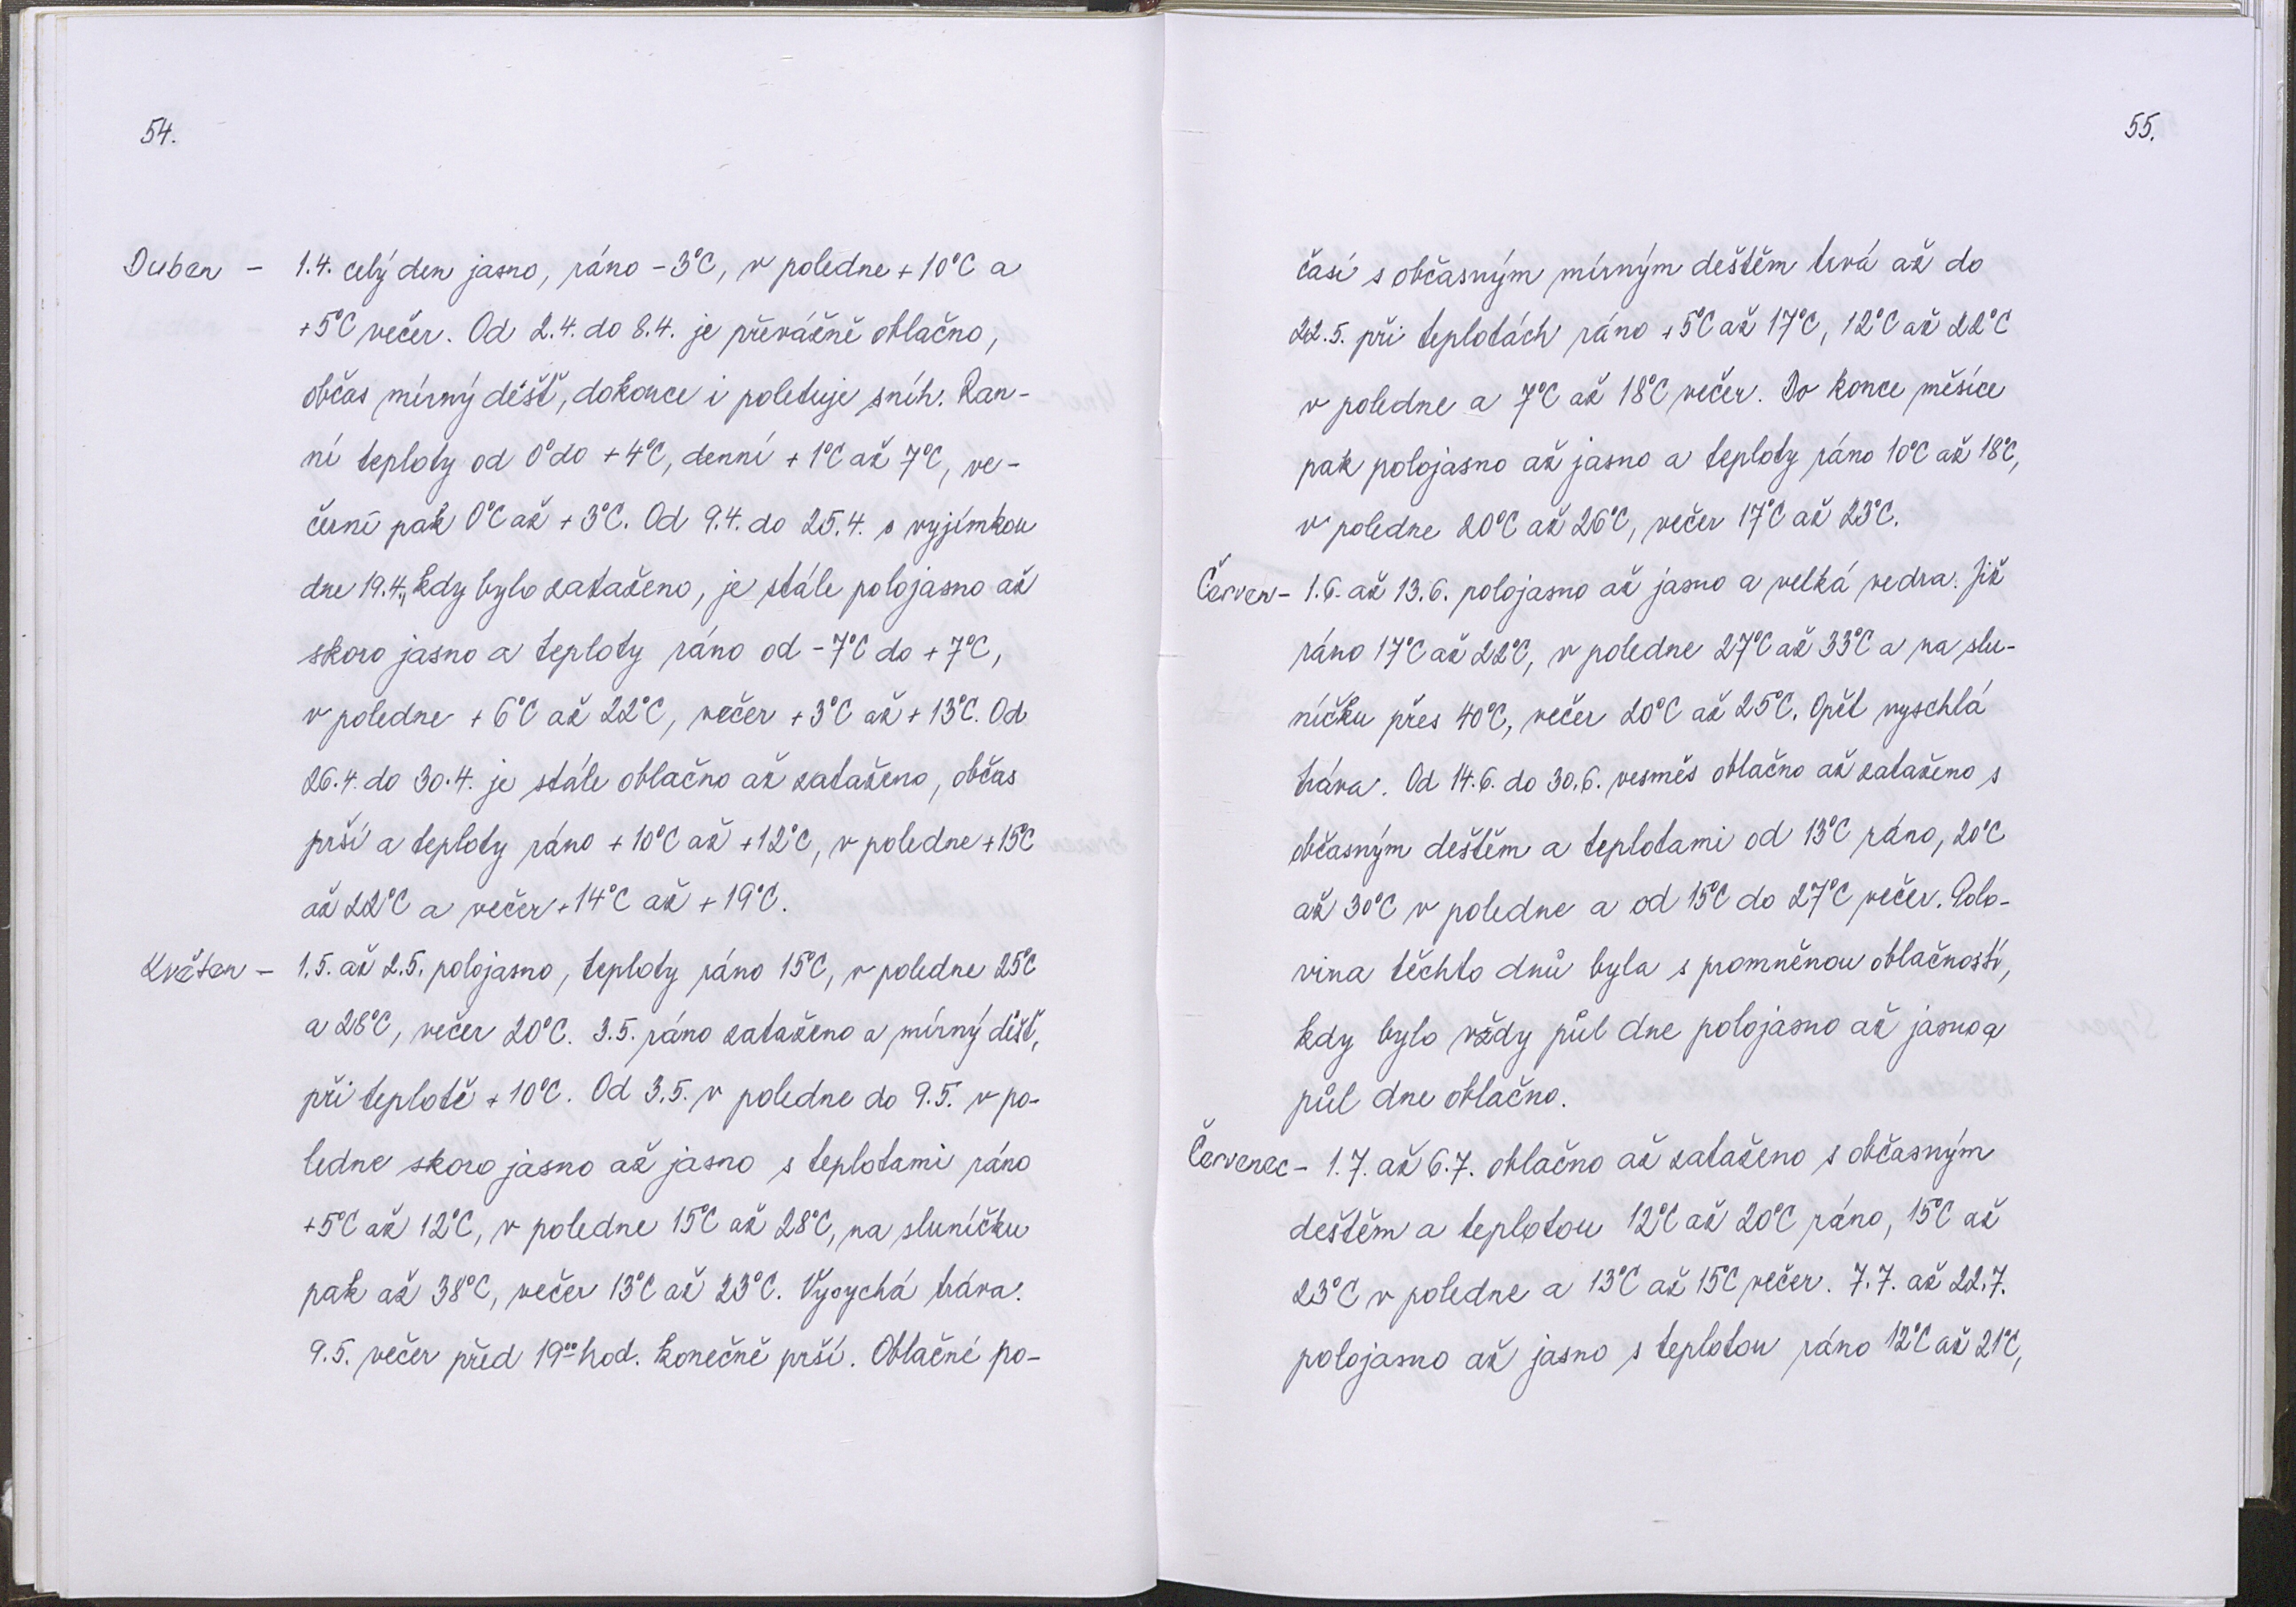 54.
Duben - 1.4. celý den jasno, ráno -3°C, v poledne +10°C a
+5°C večer. Od 2.4. do 8.4. je převážně oblačno,
občas mírný déšť, dokonce i poletuje sníh. Ran-
ní teploty od 0° do +4°C, denní +1°C až 7°C, ve-
černí pak 0°C až +3°C. Od 9.4. do 25.4. s vyjímkou
dne 19.4., kdy bylo zataženo, je stále polojasno až
skoro jasno a teploty ráno od -7°C do +7°C,
v poledne +6°C až 22°C, večer +3°C až +13°C. Od
26.4. do 30.4. je stále oblačno až zataženo, občas
prší a teploty ráno +10°C až +12°C, v poledne +15°C
až 22°C a večer +14°C až +19°C.
Květen - 1.5. až 2.5. polojasno, teploty ráno 15°C, v poledne 25°C
a 28°C, večer 20°C. 3.5. ráno zataženo a mírný déšť,
při teplotě +10°C. Od 3.5. v poledne do 9.5. v po-
ledne skoro jasno až jasno s teplotami ráno
+5°C až 12°C, v poledne 15°C až 28°C, na sluníčku
pak až 38°C, večer 13°C až 23°C. Vysychá tráva.
9.5. večer před 19⁰⁰ hod. konečně prší. Oblačné po-
55.
časí s občasným mírným deštěm trvá až do
22.5. při teplotách ráno +5°C až 17°C, 12°C až 22°C
v poledne a 7°C až 18°C večer. Do konce měsíce
pak polojasno až jasno a teploty ráno 10°C až 18°C,
v poledne 20°C až 26°C, večer 17°C až 23°C.
Červen - 1.6. až 13.6. polojasno až jasno a velká vedra. Již
ráno 17°C až 22°C, v poledne 27°C až 33°C a na slu-
níčku přes 40°C, večer 20°C až 25°C. Opět vyschlá
tráva. Od 14.6. do 30.6. vesměs oblačno až zataženo s
občasným deštěm a teplotami od 13°C ráno, 20°C
až 30°C v poledne a od 15°C do 27°C večer. Polo-
vina těchto dnů byla s promněnou oblačností,
kdy bylo vždy půl dne polojasno až jasno a
půl dne oblačno.
Červenec - 1.7. až 6.7. oblačno až zataženo s občasným
deštěm a teplotou 12°C až 20°C ráno, 15°C až
23°C v poledne a 13°C až 15°C večer. 7.7. až 22.7.
polojasno až jasno s teplotou ráno 12°C až 21°C,